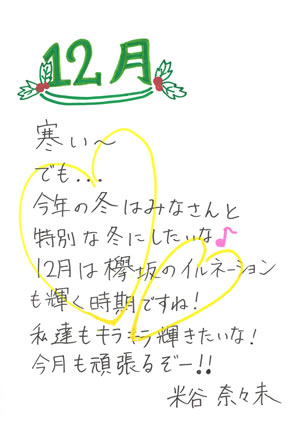 12月
寒い〜
でも...
今年の冬はみなさんと
特別な冬にしたいな♪
12月は欅坂のイルネーション
も輝く時期ですね！
私達もキラキラ輝きたいな！
今月も頑張るぞー!!
米谷 奈々未